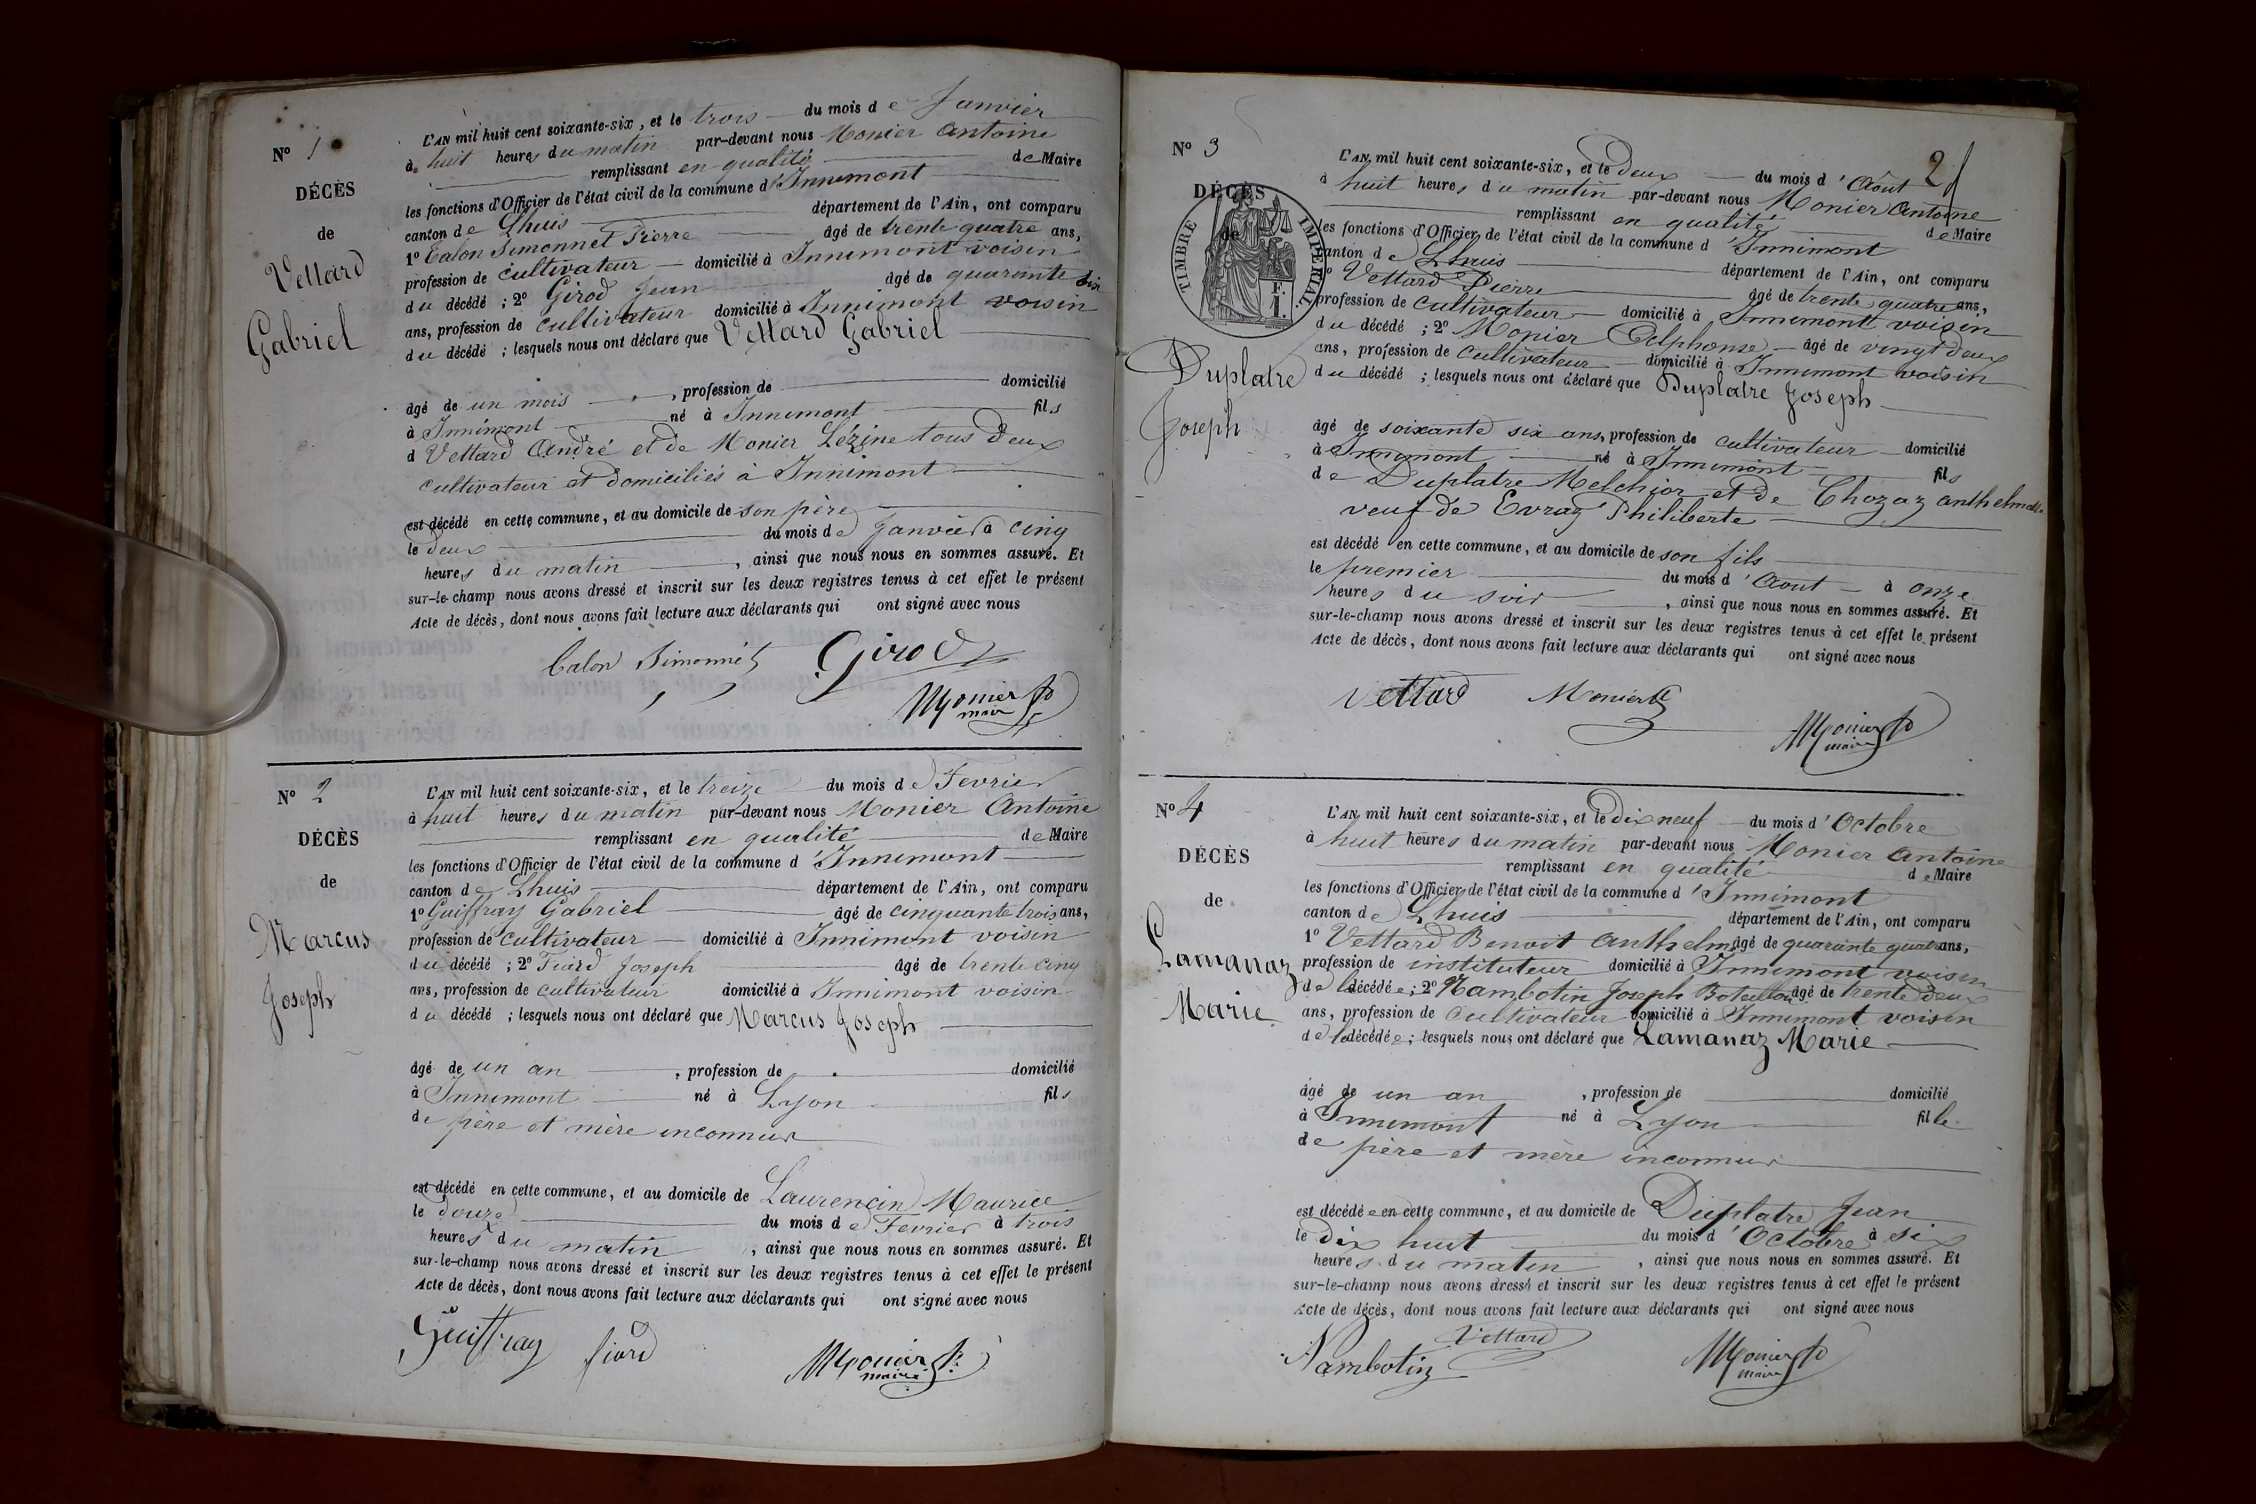 N° 1
DÉCÈS
de
Vettard
Gabriel
L'AN mil huit cent soixante-six, et le trois du mois de Janvier
à huit heures du matin par-devant nous Monier Antoine
remplissant en qualité de Maire
les fonctions d'Officier de l'état civil de la commune d'Innimont
canton de Lhuis département de l'Ain, ont comparu
1° Calon Simonnet Pierre âgé de trente quatre ans,
profession de cultivateur domicilié à Innimont voisin
du décédé ; 2° Girod Jean âgé de quarante six
ans, profession de cultivateur domicilié à Innimont voisin
du décédé ; lesquels nous ont déclaré que Vettard Gabriel
âgé de un mois , profession de domicilié
à Innimont né à Innimont fils
d Vettard André et de Monier Lézine tous deux
cultivateur et domiciliés à Innimont
est décédé en cette commune, et au domicile de son père
le deux du mois de Janvier à cinq
heures du matin , ainsi que nous nous en sommes assuré. Et
sur-le-champ nous avons dressé et inscrit sur les deux registres tenus à cet effet le présent
Acte de décès, dont nous avons fait lecture aux déclarants qui ont signé avec nous
Calon Simonnet Girod
Monier
maire
N° 2
DÉCÈS
de
Marcus
Joseph
L'AN mil huit cent soixante-six, et le treize du mois de Fevrier
à huit heures du matin par-devant nous Monier Antoine
remplissant en qualité de Maire
les fonctions d'Officier de l'état civil de la commune d'Innimont
canton de Lhuis département de l'Ain, ont comparu
1° Guiffray Gabriel âgé de cinquante trois ans,
profession de cultivateur domicilié à Innimont voisin
du décédé ; 2° Fiard Joseph âgé de trente cinq
ans, profession de cultivateur domicilié à Innimont voisin
du décédé ; lesquels nous ont déclaré que Marcus Joseph
âgé de un an , profession de domicilié
à Innimont né à Lyon fils
de père et mère inconnus
est décédé en cette commune, et au domicile de Laurencin Maurice
le douze du mois de Fevrier à trois
heures du matin , ainsi que nous nous en sommes assuré. Et
sur-le-champ nous avons dressé et inscrit sur les deux registres tenus à cet effet le présent
Acte de décès, dont nous avons fait lecture aux déclarants qui ont signé avec nous
Guiffray fiard Monier
maire
2
N° 3
DÉCÈS
de
TIMBRE IMPERIAL
F.
1.
Duplatre
Joseph
L'AN mil huit cent soixante-six, et le deux du mois d'Août
à huit heures du matin par-devant nous Monier Antoine
remplissant en qualité de Maire
les fonctions d'Officier de l'état civil de la commune d'Innimont
canton de Lhuis département de l'Ain, ont comparu
1° Vettard Pierre âgé de trente quatre ans,
profession de cultivateur domicilié à Innimont voisin
du décédé ; 2° Monier Delphonse âgé de vingt deux
ans, profession de cultivateur domicilié à Innimont voisin
du décédé ; lesquels nous ont déclaré que Duplatre Joseph
âgé de soixante six ans, profession de cultivateur domicilié
à Innimont né à Innimont fils
de Duplatre Melchior et de Chozaz
veuf de Evray Philiberte
est décédé en cette commune, et au domicile de son fils
le premier du mois d'Aout à onze
heures du soir , ainsi que nous nous en sommes assuré. Et
sur-le-champ nous avons dressé et inscrit sur les deux registres tenus à cet effet le présent
Acte de décès, dont nous avons fait lecture aux déclarants qui ont signé avec nous
Vettard Monier
Monier
maire
N° 4
DÉCÈS
de
Lamanaz
Marie
L'AN mil huit cent soixante-six, et le dix neuf du mois d'Octobre
à huit heures du matin par-devant nous Monier Antoine
remplissant en qualité de Maire
les fonctions d'Officier de l'état civil de la commune d'Innimont
canton de Lhuis département de l'Ain, ont comparu
1° Vettard Benoit Anthelme âgé de quarante quatre ans,
profession de instituteur domicilié à Innimont voisin
de la décédée ; 2° Nambotin Joseph âgé de trente deux
ans, profession de cultivateur domicilié à Innimont voisin
de la décédée ; lesquels nous ont déclaré que Lamanaz Marie
âgé de un an , profession de domicilié
à Innimont né à Lyon fille
de père et mère inconnus
est décédée en cette commune, et au domicile de Duplatre Jean
le dix huit du mois d'Octobre à six
heures du matin , ainsi que nous nous en sommes assuré. Et
sur-le-champ nous avons dressé et inscrit sur les deux registres tenus à cet effet le présent
Acte de décès, dont nous avons fait lecture aux déclarants qui ont signé avec nous
Nambotin Vettard Monier
maire